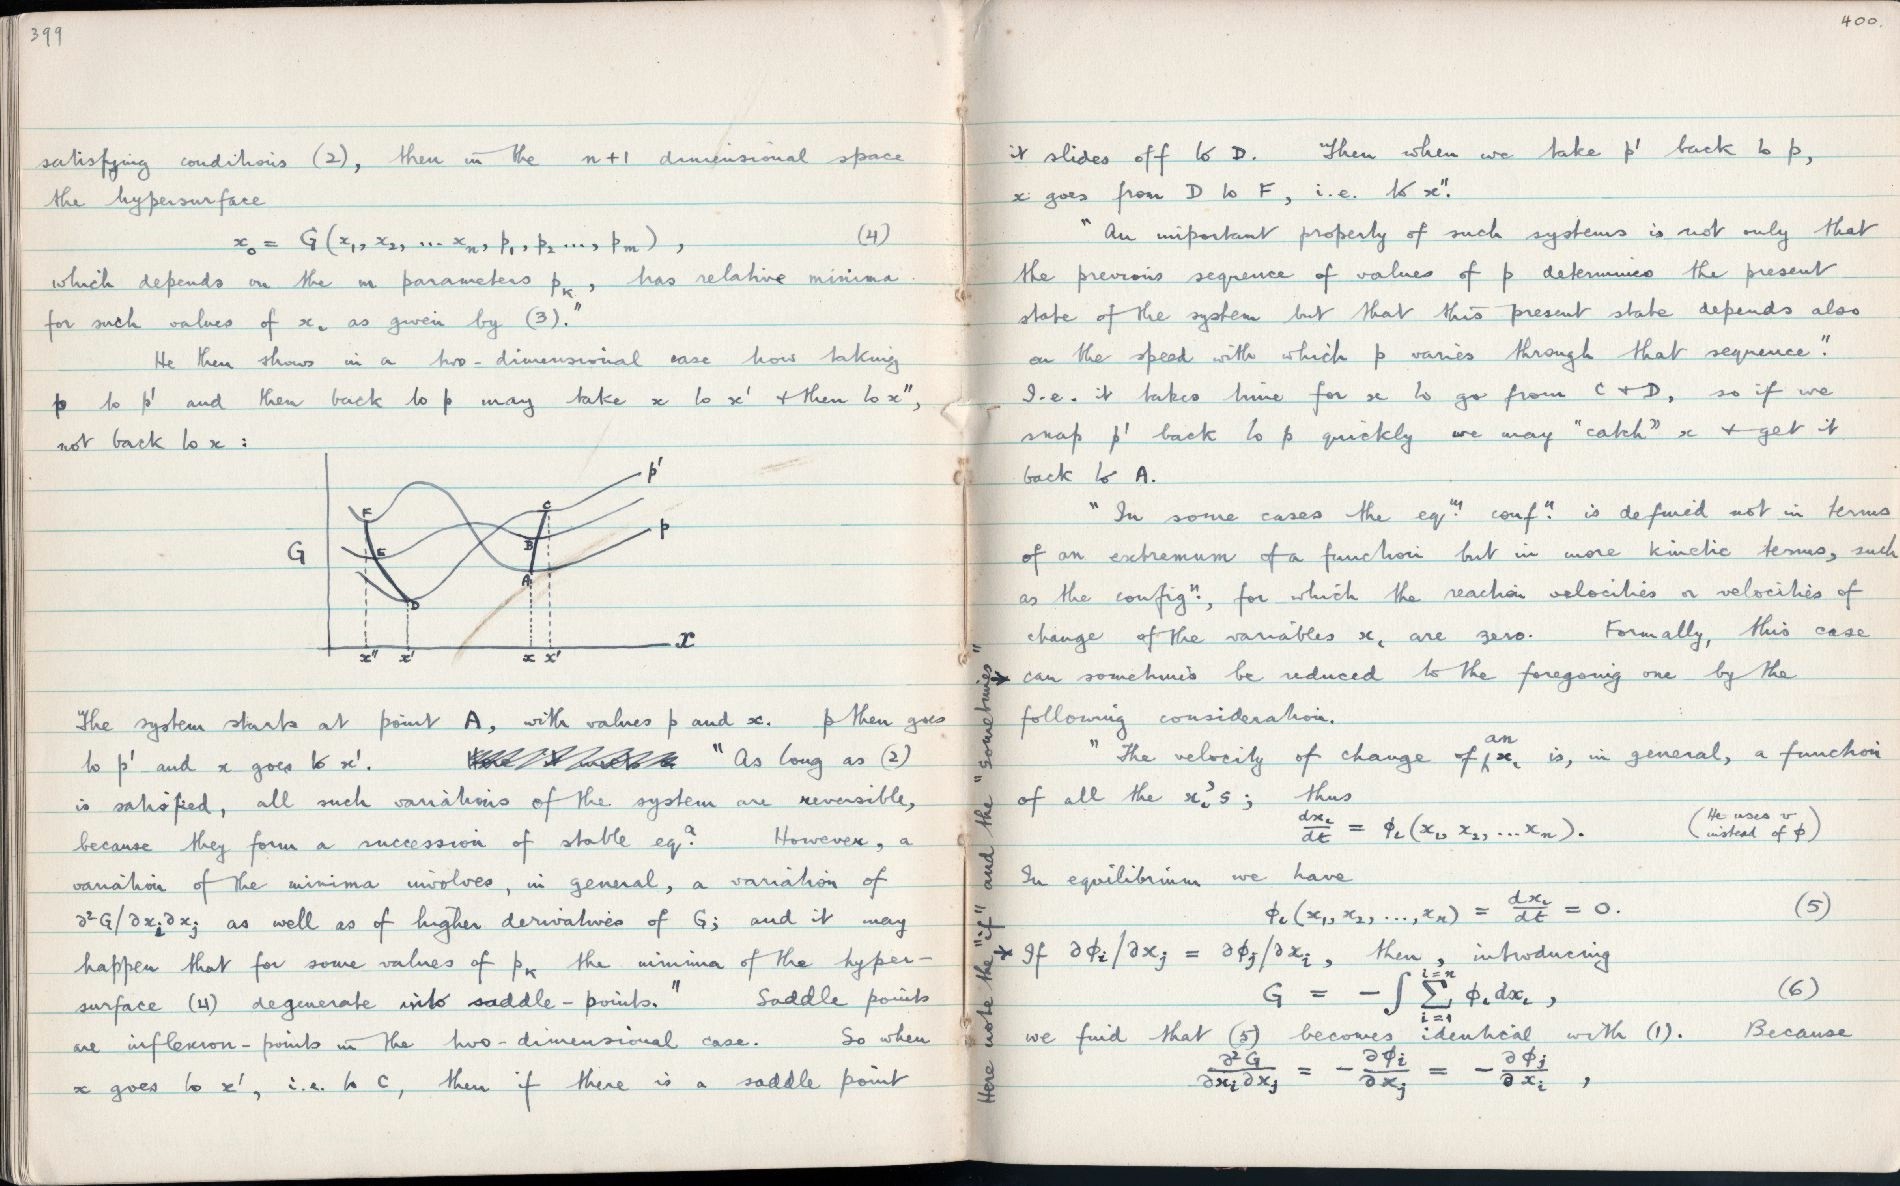 399
satisfying conditions (2), then in the n+1 dimensional space
the hypersurface
x₀ = G(x₁, x₂, ... xₙ, p₁, p₂ ..., pₘ) , (4)
which depends on the m parameters pₖ, has relative minima
for such values of xᵢ as given by (3)."
He then shows in a two-dimensional case how taking
p to p' and then back to p may take x to x' + then to x",
not back to x :
p'
F
C
p
G
E
B
A
D
x
x" x' x x'
The system starts at point A, with values p and x. p then goes
to p' and x goes to x'. " As long as (2)
is satisfied, all such variations of the system are reversible,
because they form a succession of stable eqᵃ. However, a
variation of the minima involves, in general, a variation of
∂²G/∂xᵢ∂xⱼ as well as of higher derivatives of G; and it may
happen that for some values of pₖ the minima of the hyper-
surface (4) degenerate into saddle-points." Saddle points
are inflexion-points in the two-dimensional case. So when
x goes to x', i.e. to C, then if there is a saddle point
400.
it slides off to D. Then when we take p' back to p,
x goes from D to F, i.e. to x".
" An important property of such systems is not only that
the previous sequence of values of p determines the present
state of the system but that this present state depends also
on the speed with which p varies through that sequence".
I.e. it takes time for x to go from C + D, so if we
snap p' back to p quickly we may "catch" x + get it
back to A.
" In some cases the eqᵐ. confⁿ. is defined not in terms
of an extremum of a function but in more kinetic terms, such
as the configⁿ., for which the reaction velocities or velocities of
change of the variables xᵢ are zero. Formally, this case
can sometimes be reduced to the foregoing one by the
following consideration.
" The velocity of change of an xᵢ is, in general, a function
of all the xᵢ's ; thus
dxᵢ/dt = ϕᵢ(x₁, x₂, ... xₙ). (He uses v instead of ϕ)
In equilibrium we have
ϕᵢ(x₁, x₂, ..., xₙ) = dxᵢ/dt = 0. (5)
If ∂ϕᵢ/∂xⱼ = ∂ϕⱼ/∂xᵢ, then, introducing
G = - ∫ Σ_{i=1}^{i=n} ϕᵢ dxᵢ , (6)
we find that (5) becomes identical with (1). Because
∂²G/∂xᵢ∂xⱼ = - ∂ϕᵢ/∂xⱼ = - ∂ϕⱼ/∂xᵢ ,
Here note the "if" and the "sometimes"